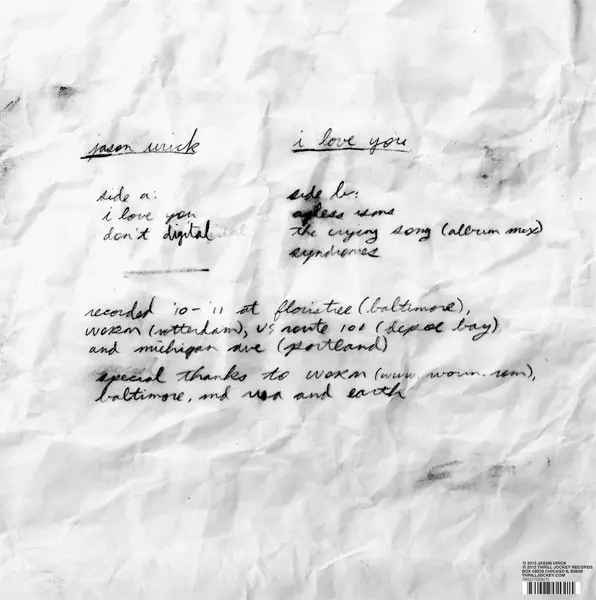 jason urick
i love you
side a:
i love you
don't digital
side b:
ageless isms
the crying song (album mix)
syndromes
recorded '10-'11 at floristree (baltimore),
worm (rotterdam), US route 101 (depoe bay)
and michigan ave (portland)
special thanks to worm (www.worm.com),
baltimore, md usa and earth
© 2012 JASON URICK
© 2012 THRILL JOCKEY RECORDS
BOX 08038 CHICAGO IL 60608
THRILLJOCKEY.COM